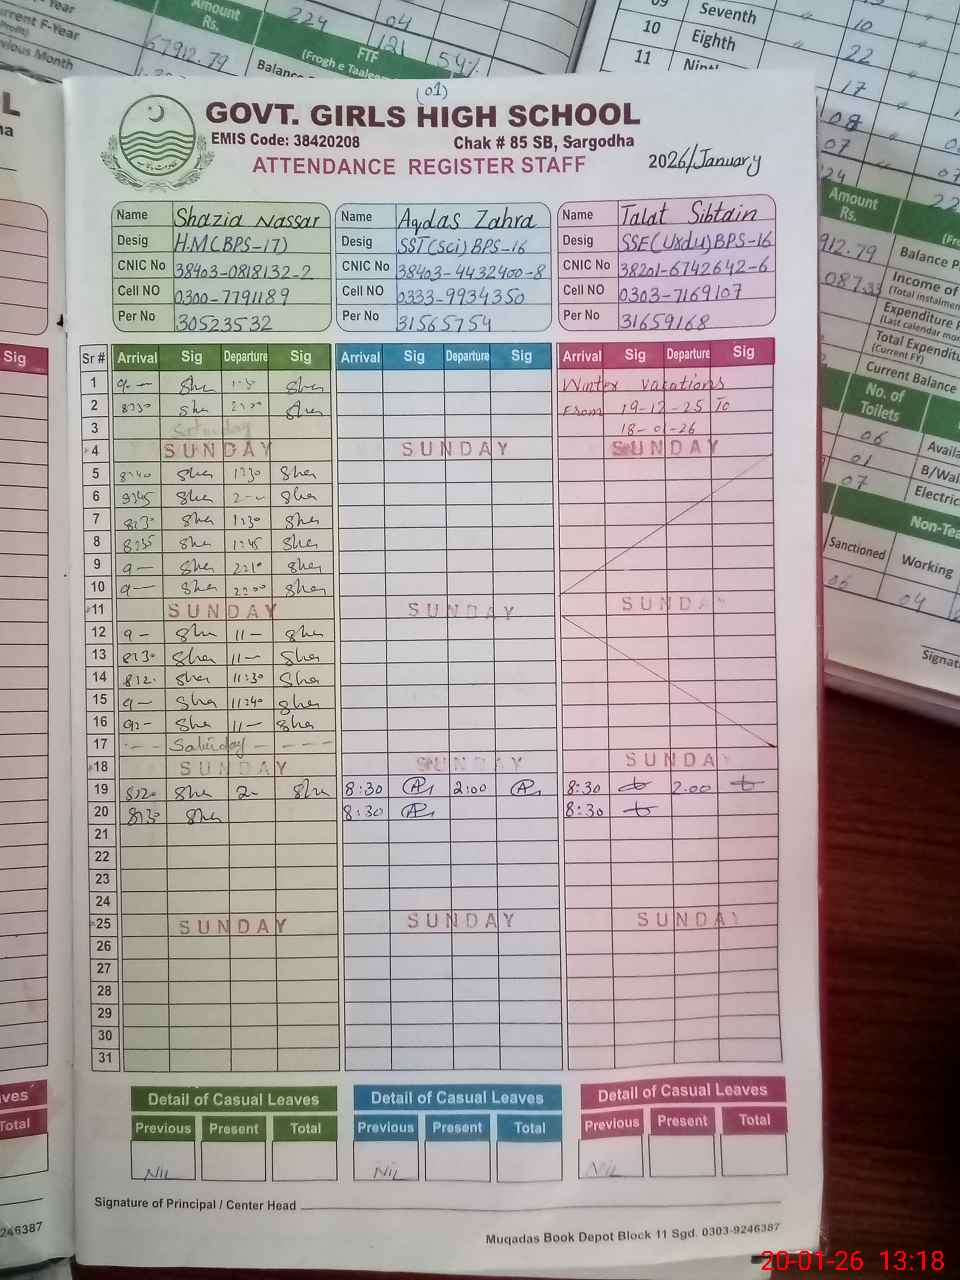 (01)
GOVT. GIRLS HIGH SCHOOL
EMIS Code: 38420208 Chak # 85 SB, Sargodha
ATTENDANCE REGISTER STAFF 2026/January
Name Shazia Nassar Name Aqdas Zahra Name Talat Sibtain
Desig H.M(BPS-17) Desig SST(Sci)BPS-16 Desig SSE(Urdu)BPS-16
CNIC No 38403-0818132-2 CNIC No 38403-4432400-8 CNIC No 38201-6742642-6
Cell NO 0300-7791189 Cell NO 0333-9934350 Cell NO 0303-7169107
Per No 30523532 Per No 31565754 Per No 31659168
Sr # Arrival Sig Departure Sig Arrival Sig Departure Sig Arrival Sig Departure Sig
1 9- Sha Sha Winter vacations
2 8:30 Sha Sha From 19-12-25 To
3 Saturday 18-01-26
4 SUNDAY SUNDAY SUNDAY
5 8:40 Sha 1:30 Sha
6 9:45 Sha 2- Sha
7 8:30 Sha 1:30 Sha
8 8:35 Sha 1:45 Sha
9 9- Sha 2:10 Sha
10 9- Sha 2:00 Sha
11 SUNDAY SUNDAY SUNDAY
12 9- Sha 11- Sha
13 8:30 Sha 11- Sha
14 Sha 11:30 Sha
15 9- Sha 11:40 Sha
16 Sha 11- Sha
17 Saturday
18 SUNDAY SUNDAY SUNDAY
19 8:20 Sha 2- Sha 8:30 2:00 8:30 2:00
20 8:30 Sha 8:30 8:30
21
22
23
24
25 SUNDAY SUNDAY SUNDAY
26
27
28
29
30
31
Detail of Casual Leaves Detail of Casual Leaves Detail of Casual Leaves
Previous Present Total Previous Present Total Previous Present Total
NIL NIL NIL
Signature of Principal / Center Head
Muqadas Book Depot Block 11 Sgd. 0303-9246387
Year
F-Year
Month
Amount
Rs.
67912.79
224 04
121
FTF
(Frogh e Taleem
54%
Seventh
10 Eighth
11
10
22
17
08
07
24
Amount
Rs.
912.79
Balance
Income of
(Total
Expenditure
(Last calendar
Total
(Current FY)
Current Balance
No. of
Toilets
06
01
07
B/Wall
Electric
Sanctioned Working
06 04
Sig
Total
246387
20-01-26 13:18